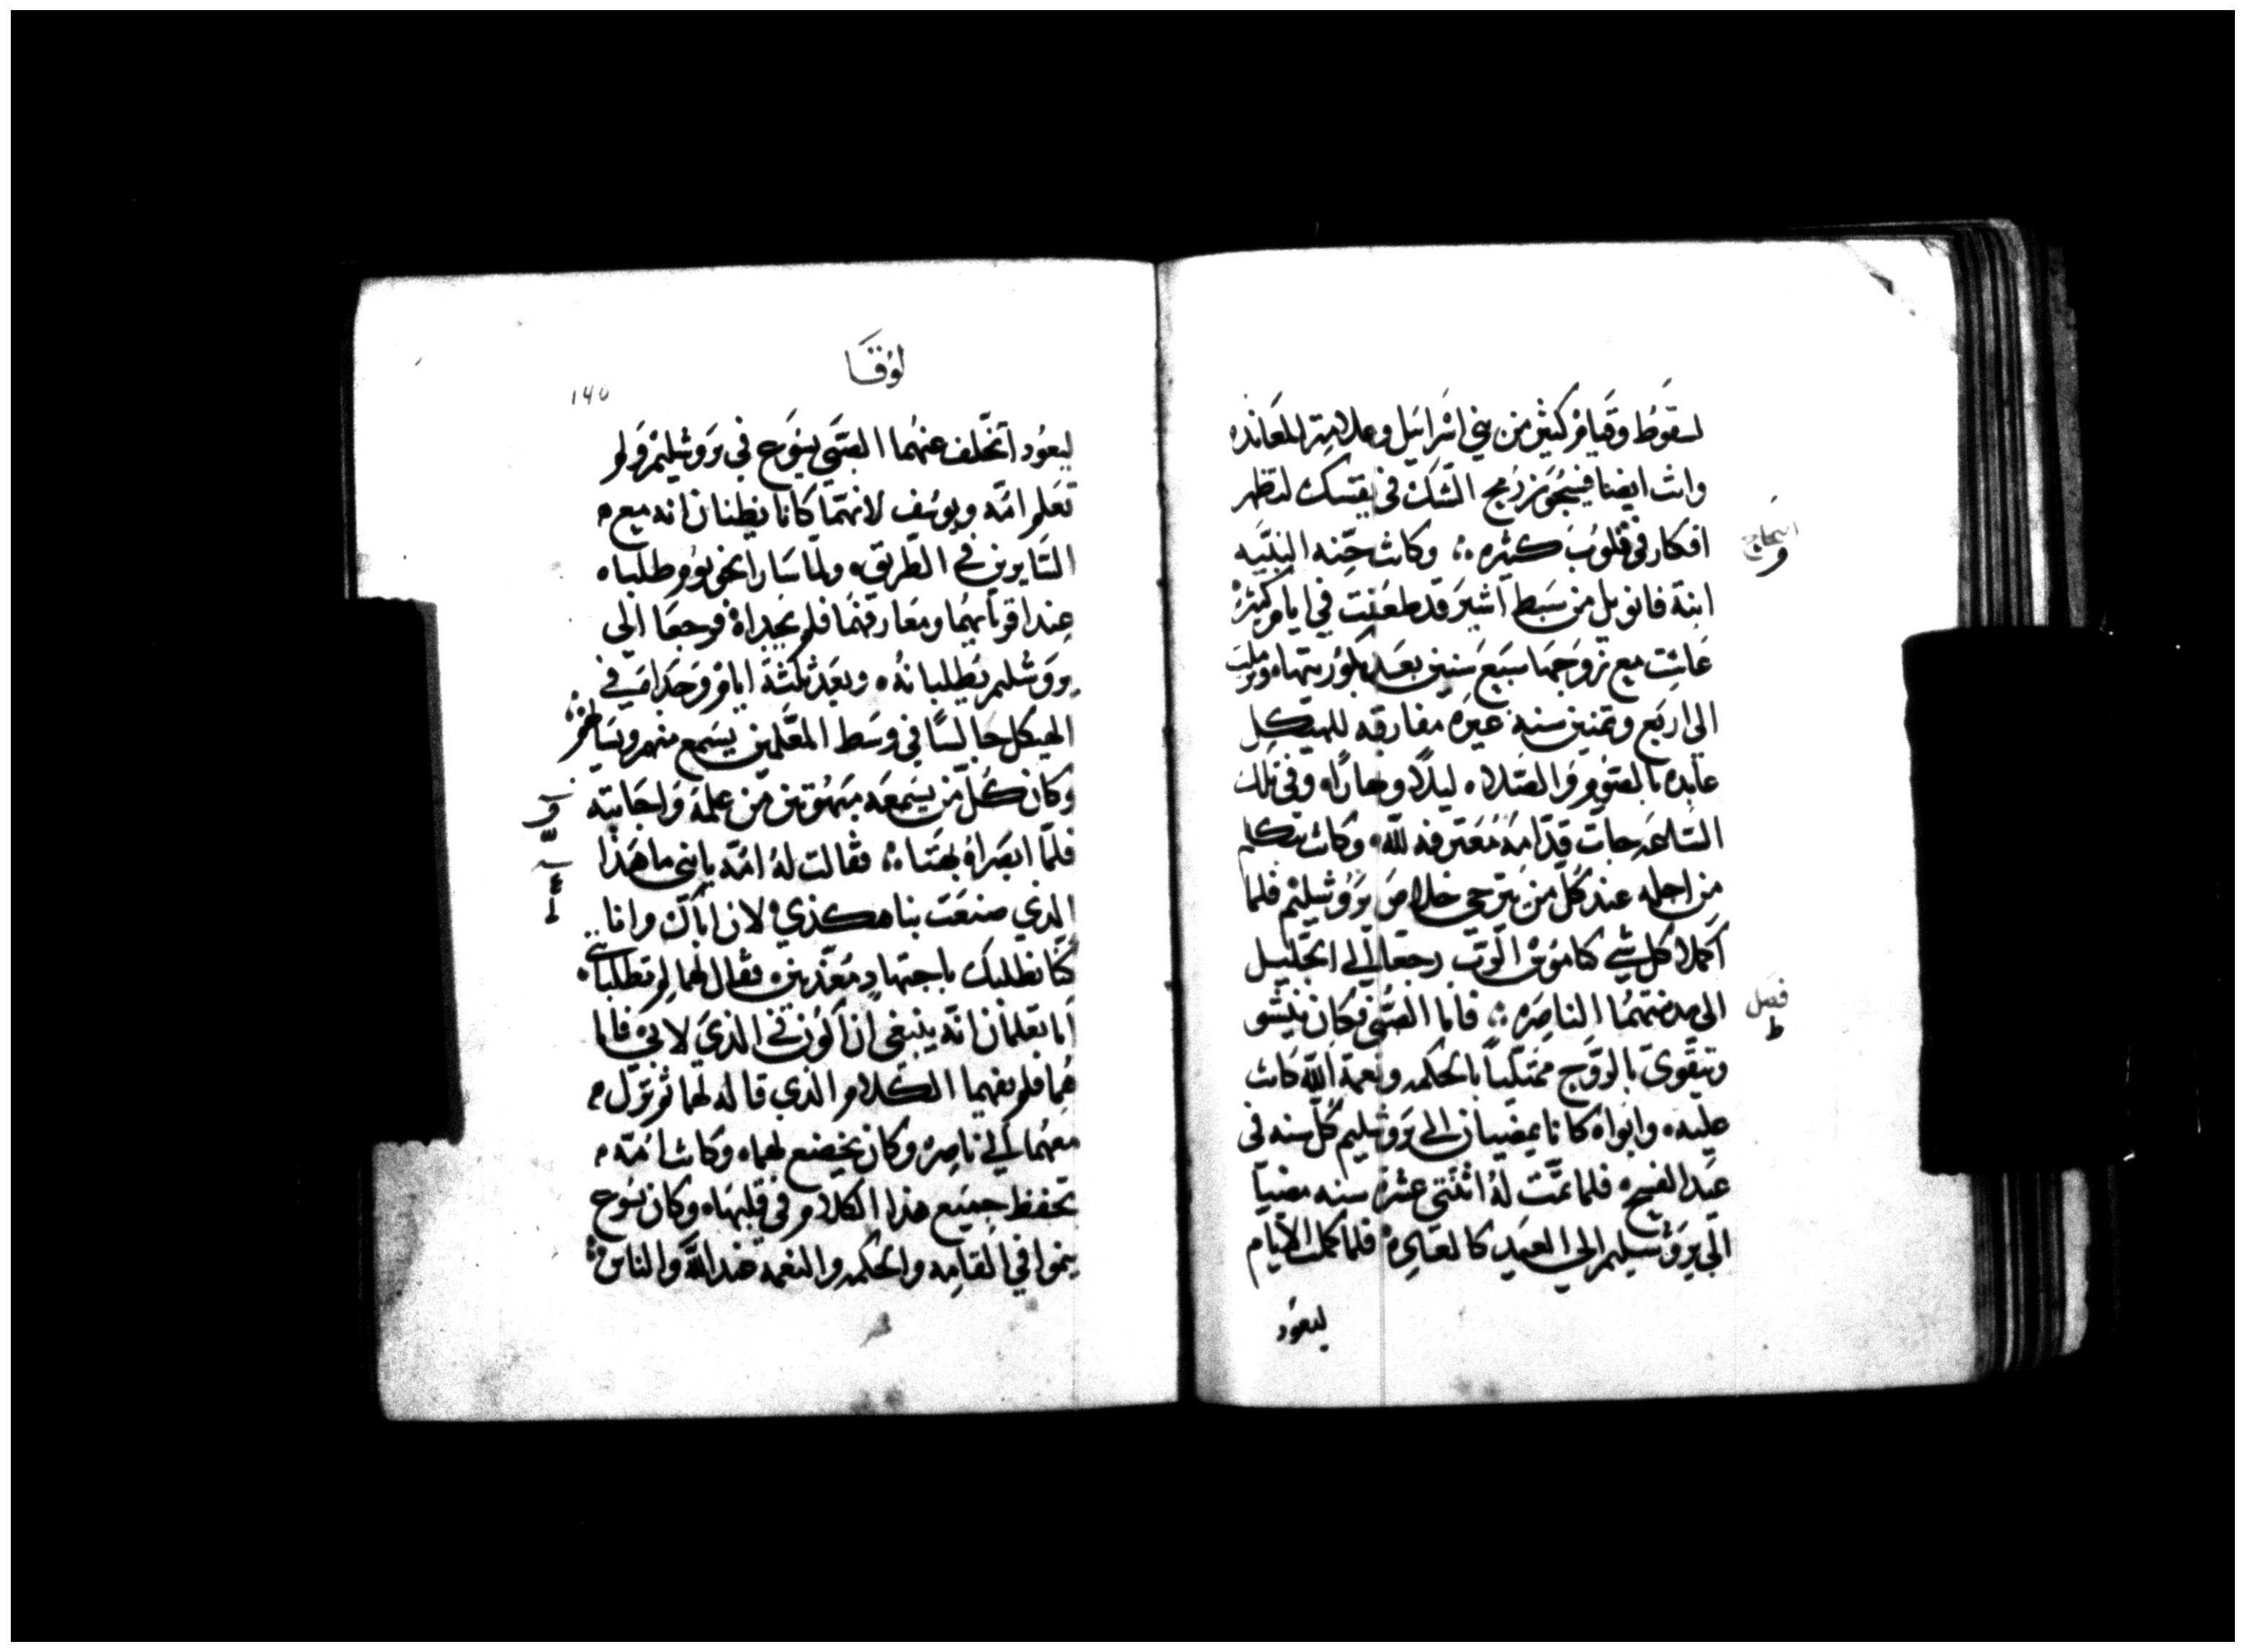 لسقوط وقيام كثير من بني اسرايل وعلامة للمعانده
وانت ايضا فسيجوز رمح الشك في نفسك لتظهر
افكار في قلوب كثيره ؞ وكانت حنه النبيه
اصحاح
و
ابنة فانويل من سبط اشير قد طعنت في ايام كثيرة
عاشت مع زوجها سبع سنين بعد بكوريتها وترملت
الى اربع وثمنين سنه غيره مفارقه للهيكل
عابده بالصوم والصلاه ليلاً ونهاراً وفي تلك
الساعه جات قدامه معترفه لله وكانت تتكلم
من اجله عند كل من يترجى خلاص يروشليم فلما
اكملا كل شي كناموس الرب رجعا الى الجليل
الى مدينتهما الناصره ؞ فاما الصبي فكان ينشو
فصل
ط
ويتقوى بالروح ممتلياً بالحكمه ونعمة الله كانت
عليه وابواه كانا يمضيان الى يروشليم كل سنه في
عيد الفسح فلما تمت له اثنتى عشرة سنه مضيا
الى يروشليم الى العيد كالعادة فلما كملت الايام
ليعود
لوقا
١٤٥
ليعود اتخلف عنهما الصبي يسوع في يروشليم ولم
تعلم امه ويوسف لانهما كانا يظنان انه مع
السايرين في الطريق ولما سارا نحو يوم طلباه
عند اقربايهما ومعارفهما فلم يجداه فرجعا الى
يروشليم يطلبانه وبعد ثلثة ايام وجداه في
الهيكل جالسًا في وسط المعلمين يسمع منهم ويساطهم
وكان كل من يسمعه مبهوتين من علمه واجابته
فلما ابصراه بهتا ؞ فقالت له امه يابني ما هذا
الذي صنعت بنا هكذي لان اباك وانا
كنا نطلبك باجتهاد معذبين فقال لهما لم تطلباني
اما تعلمان انه ينبغي ان اكون في الذي لابي فاما
هما فلم يفهما الكلام الذي قاله لهما ثم نزل
معهما الى ناصره وكان يخضع لهما وكانت امه
تحفظ جميع هذا الكلام في قلبها وكان يسوع
ينموا في القامه والحكمه والنعمه عند الله والناس